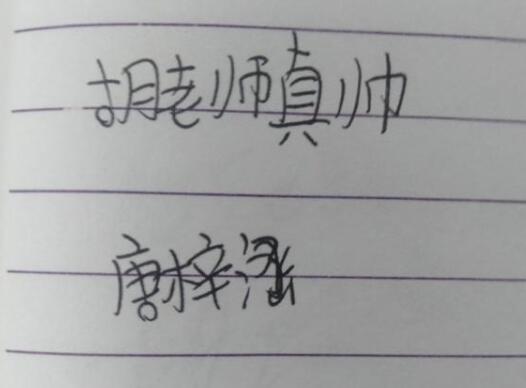 胡老师真帅
唐梓